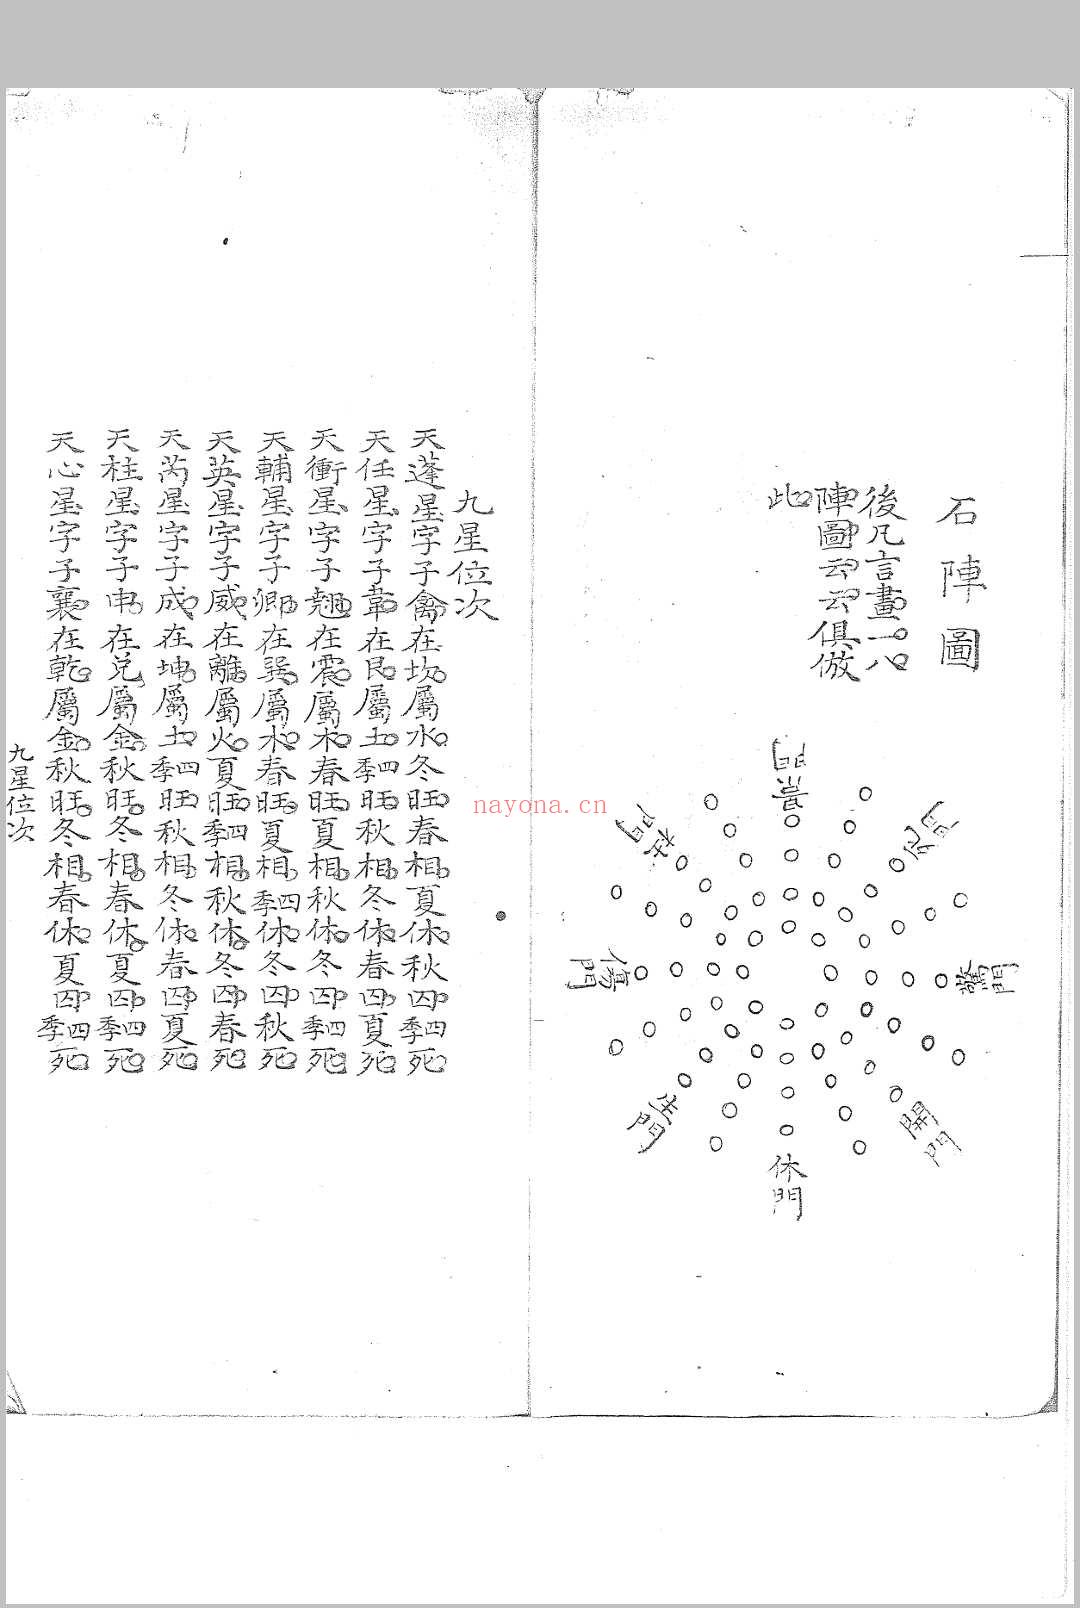 石陣圖
後凡言畫一八
陣圖云云俱倣
此
景門
死門
驚門
開門
休門
生門
傷門
杜門
九星位次
天蓬星字子禽在坎屬水冬旺春相夏休秋囚四季死
天任星字子韋在艮屬土四季旺秋相冬休春囚夏死
天衝星字子翹在震屬木春旺夏相秋休冬囚四季死
天輔星字子卿在巽屬木春旺夏相四季休冬囚秋死
天英星字子威在離屬火夏旺四季相秋休冬囚春死
天芮星字子成在坤屬土四季旺秋相冬休春囚夏死
天柱星字子申在兌屬金秋旺冬相春休夏囚四季死
天心星字子襄在乾屬金秋旺冬相春休夏囚四季死
九星位次
nayona.cn